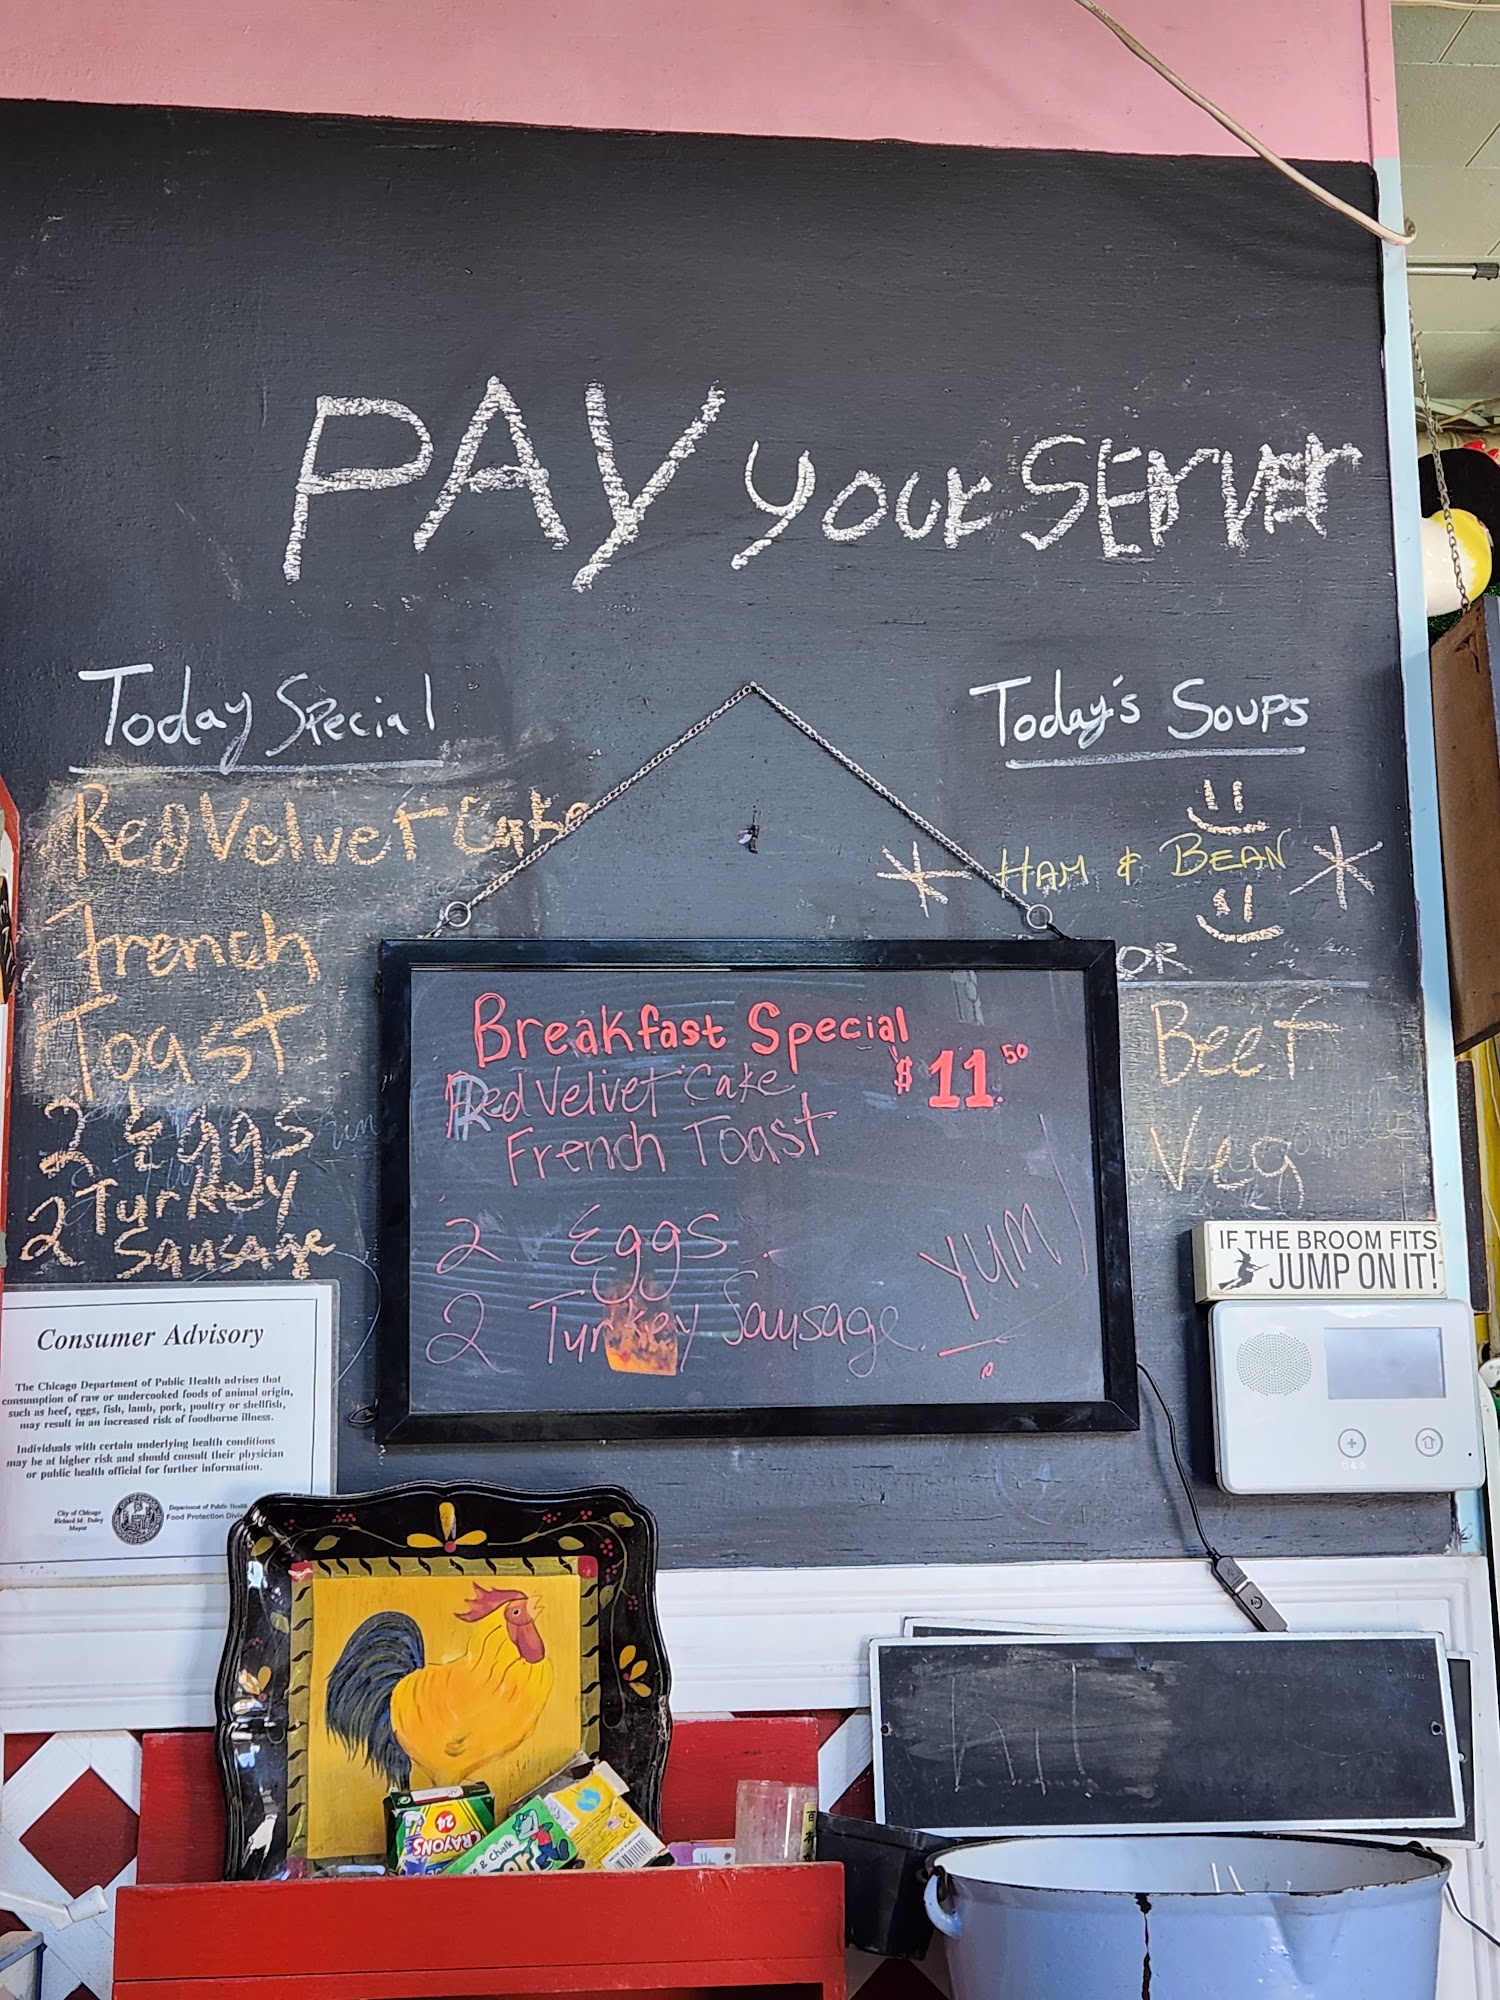 PAY your SERVER
Today Special
Red Velvet Cake
French
Toast
2 Eggs
2 Turkey
Sausage
Today's Soups
HAM & BEAN
OR
Beef
Veg
Breakfast Special
$11.50
Red Velvet Cake
French Toast
2 Eggs
2 Turkey Sausage
YUM
IF THE BROOM FITS
JUMP ON IT!
Consumer Advisory
The Chicago Department of Public Health advises that
consumption of raw or undercooked foods of animal origin,
such as beef, eggs, fish, lamb, pork, poultry or shellfish,
may result in an increased risk of foodborne illness.
Individuals with certain underlying health conditions
may be at higher risk and should consult their physician
or public health official for further information.
City of Chicago
Richard M. Daley
Mayor
Department of Public Health
Food Protection
24
CRAYONS
& Chalk